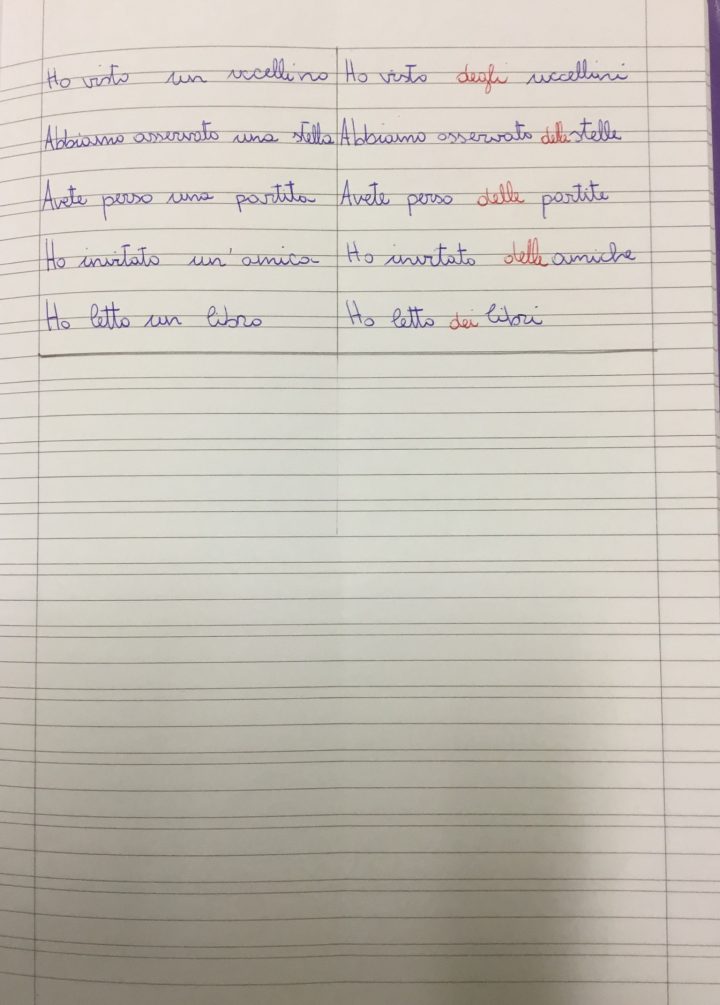 Ho visto un uccellino Ho visto degli uccellini
Abbiamo osservato una stella Abbiamo osservato delle stelle
Avete perso una partita Avete perso delle partite
Ho invitato un'amica Ho invitato delle amiche
Ho letto un libro Ho letto dei libri